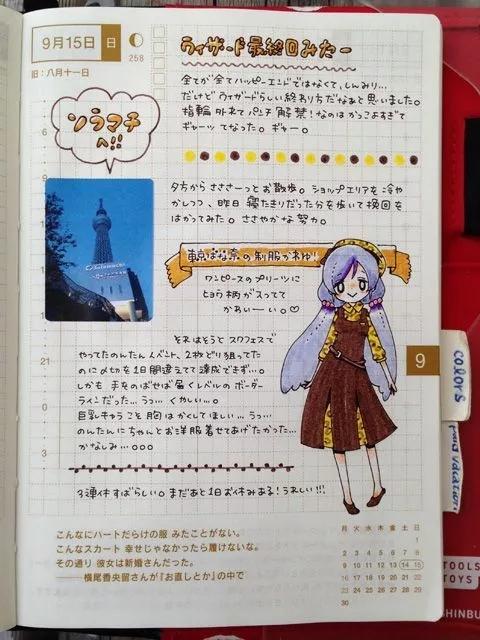 9月15日 日
258
旧：八月十一日
ウィザード最終回みたー
全てが全てハッピーエンドではなくて、しんみり…
だけどウィザードらしい終わり方だなぁと思いました。
指輪外れてパンチ解禁！なのはかっこよすぎて
ギャーッてなった。ギャー。
ソラマチへ!!
夕方からさささーっとお散歩。ショップエリアを冷や
かしつつ、昨日寝たきりだった分を歩いて挽回を
はかってみた。ささやかな努力。
東京ばな奈の制服かわゆ!
ワンピースのプリーツに
ヒョウ柄が入ってて
かわいーい。♡
それはそうとスクフェスで
やってたのんたんイベント、2枚どり狙ってた
のに〆切を1日間違えてて達成できず…。
しかも手をのばせば届くレベルのボーダー
ラインだった…うっ…くやしい…。
巨乳きゅうこと胸はかくしてほしい…うっ…
のんたんにちゃんとお洋服着せてあげたかった…
かなしみ…。。。
3連休すばらしい。まだあと1日お休みある！うれしい!!!
6
9
12
21
0
3
9
COLOYS
こんなにハートだらけの服 みたことがない。
こんなスカート 幸せじゃなかったら履けないな。
その通り 彼女は新婚さんだった。
──横尾香央留さんが『お直しとか』の中で
月 火 水 木 金 土 日
1
2 3 4 5 6 7 8
9 10 11 12 13 14 15
16 17 18 19 20 21 22
23 24 25 26 27 28 29
30
TOOLS
TOYS
SHINBU